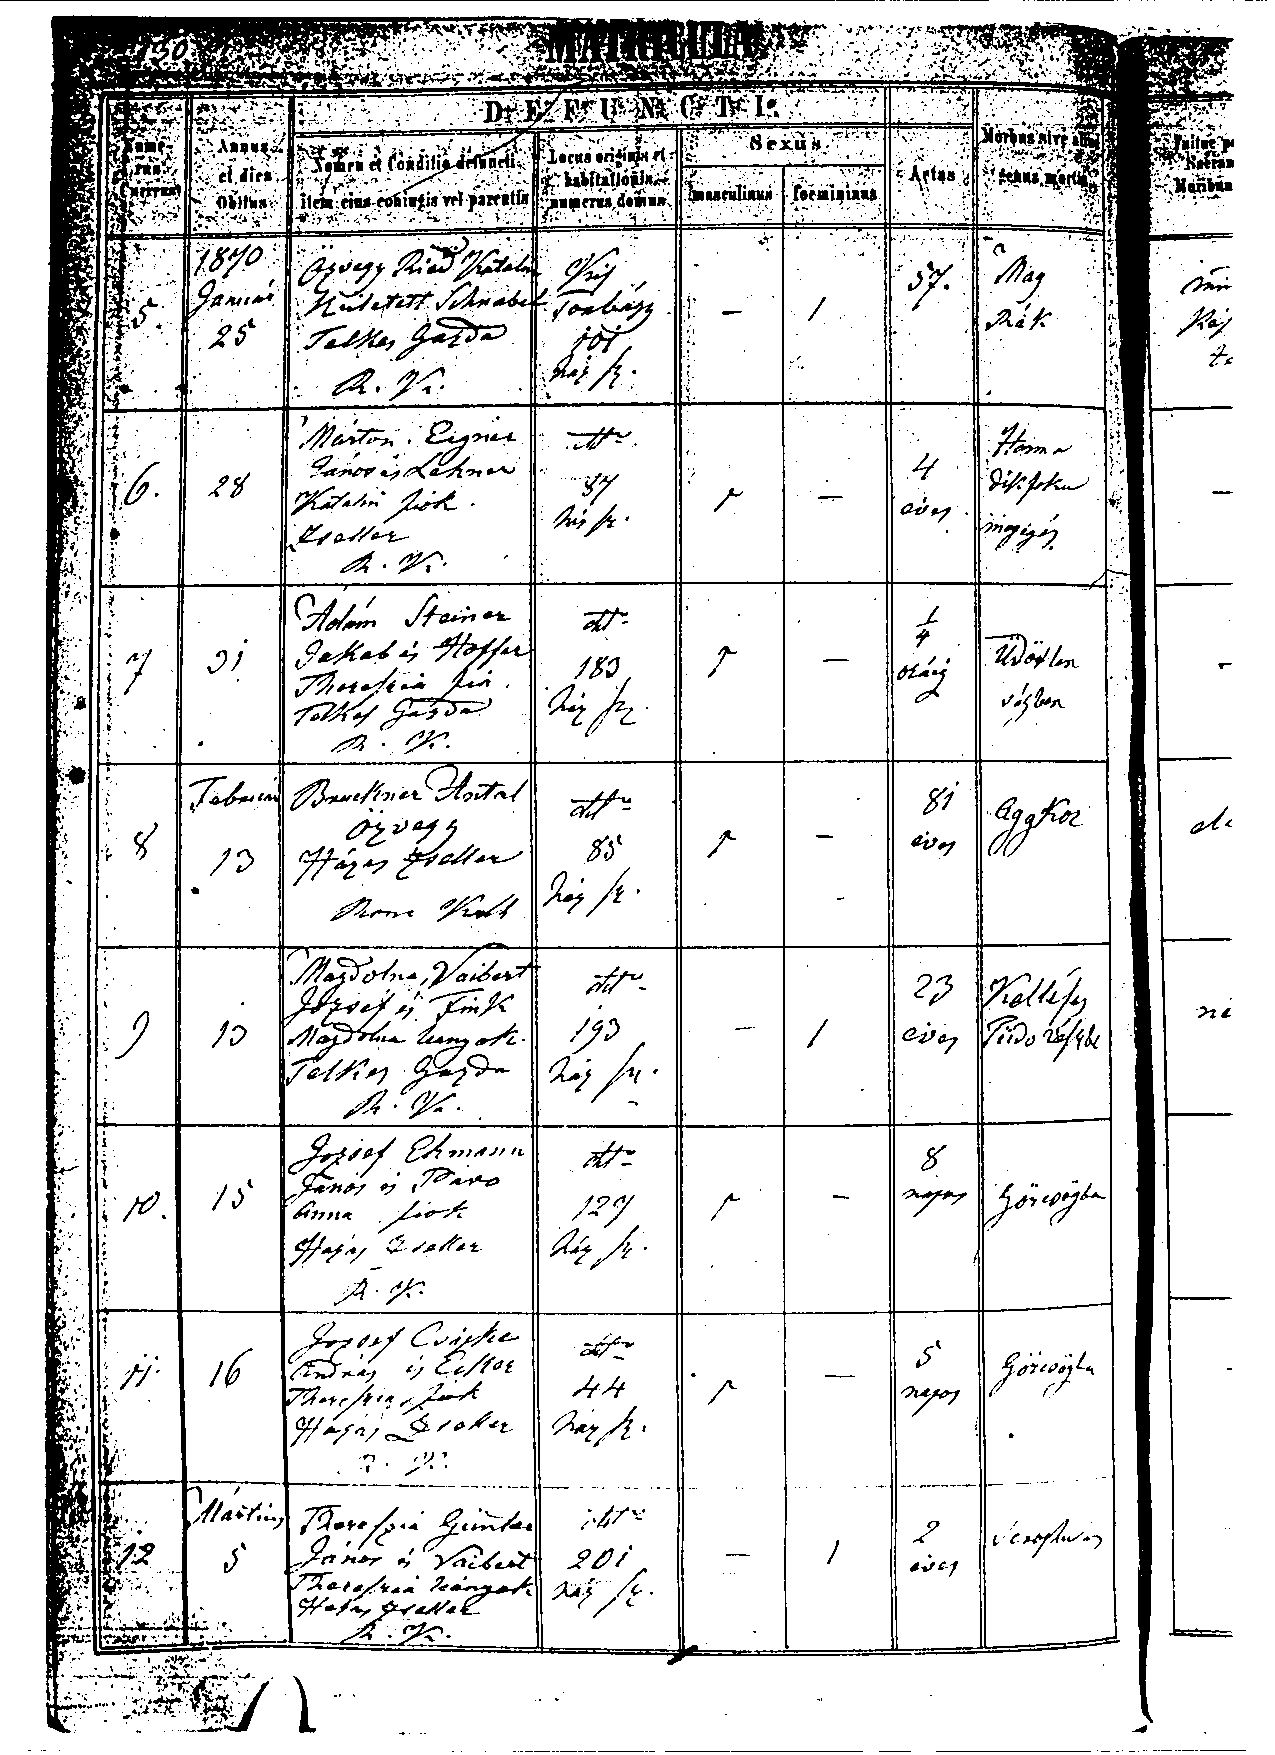 130
MATRICULA
DEFUNCTI.
Nume-
rus
Currens
Annus
et dies
Obitus
Nomen et Conditio defuncti
item eius coniugis vel parentis
Locus originis et
habitationis,
numerus domus
Sexus
masculinus
foemininus
Aetas
Morbus sive aliud
genus mortis
5.
1870
Január
25
Özvegy Ried Katalin
Született Schnabel
Telkes Gazda
R. K.
Torbágy
101
ház sz.
—
1
57.
Mag
Rák
6.
28
Márton Eigner
János és Lehner
Katalin fiok
Zseller
R. K.
dtto
87
ház sz.
1
—
4
éves
megégés
7
31
Ádám Steiner
Jakab és Hoffer
Theresia fia
Telkes Gazda
R. K.
dtto
183
ház sz.
1
—
1/4
óráig
Üdőtlen
ségben
8
Február
13
Bruckner Antal
Özvegy
Házas Zseller
Rom Kath
dtto
85
ház sz.
1
—
81
éves
Aggkor
9
13
Magdolna, Vaibert
József és Fink
Magdolna leányok
Telkes Gazda
R. K.
dtto
193
ház sz.
—
1
23
éves
10.
15
József Ehmann
János és
Anna fiok
Házas Zseller
R. K.
dtto
127
ház sz.
1
—
8
napos
Görcsögbe
11.
16
József Csipke
András és Ecker
Theresia fiok
Házas Zseller
R. K.
dtto
44
ház sz.
1
—
5
napos
Görcsögbe
12
Mártius
5
Theresia Günter
János és Vaibert
Theresia leányok
Házas Zseller
R. K.
dtto
201
ház sz.
—
1
2
éves